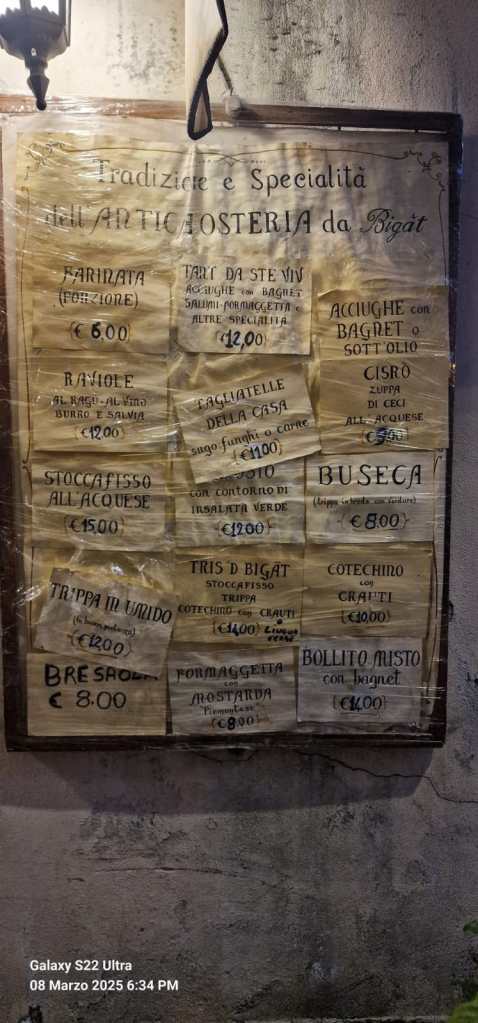 Tradizione e Specialità
dell'ANTICA OSTERIA da Bigàt
FARINATA
(PORZIONE)
(€ 6,00)
TANT DA STE VIV
ACCIUGHE con BAGNET
SALUMI-FORMAGGETTA e
ALTRE SPECIALITÀ
€12,00}
ACCIUGHE con
BAGNET o
SOTT'OLIO
RAVIOLE
AL RAGÙ-AL VINO
BURRO E SALVIA
{€12,00}
TAGLIATELLE
DELLA CASA
sugo funghi o carne
{€11,00}
CISRÒ
ZUPPA
DI CECI
ALL'ACQUESE
STOCCAFISSO
ALL'ACQUESE
{€15,00}
con CONTORNO DI
INSALATA VERDE
€12,00}
BUSECA
(trippa in brodo con verdure)
{€8,00}
TRIPPA IN UMIDO
{€12,00}
TRIS 'D BIGÀT
STOCCAFISSO
TRIPPA
COTECHINO con CRAUTI
{€14,00}
COTECHINO
con
CRAUTI
{€10,00}
BRESAOLA
€ 8.00
FORMAGGETTA
con
MOSTARDA
"Piemontese"
{€8,00}
BOLLITO MISTO
con bagnet
{€14,00}
Galaxy S22 Ultra
08 Marzo 2025 6:34 PM